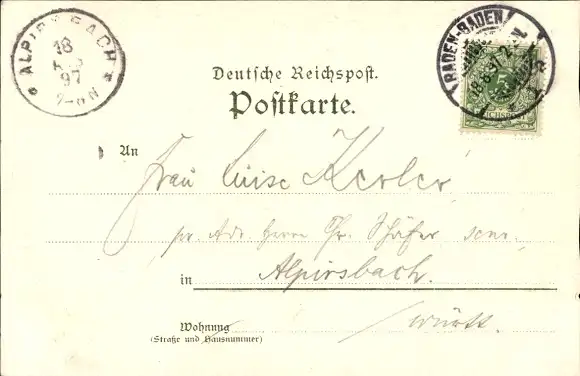 ALPIRSBACH
18
97
BADEN-BADEN
Deutsche Reichspost.
Postkarte.
An
Frau Luise Kerler
pr. Adr. Herrn Chr. Schäfer senr.
in Alpirsbach.
Wohnung Württ.
(Straße und Hausnummer)